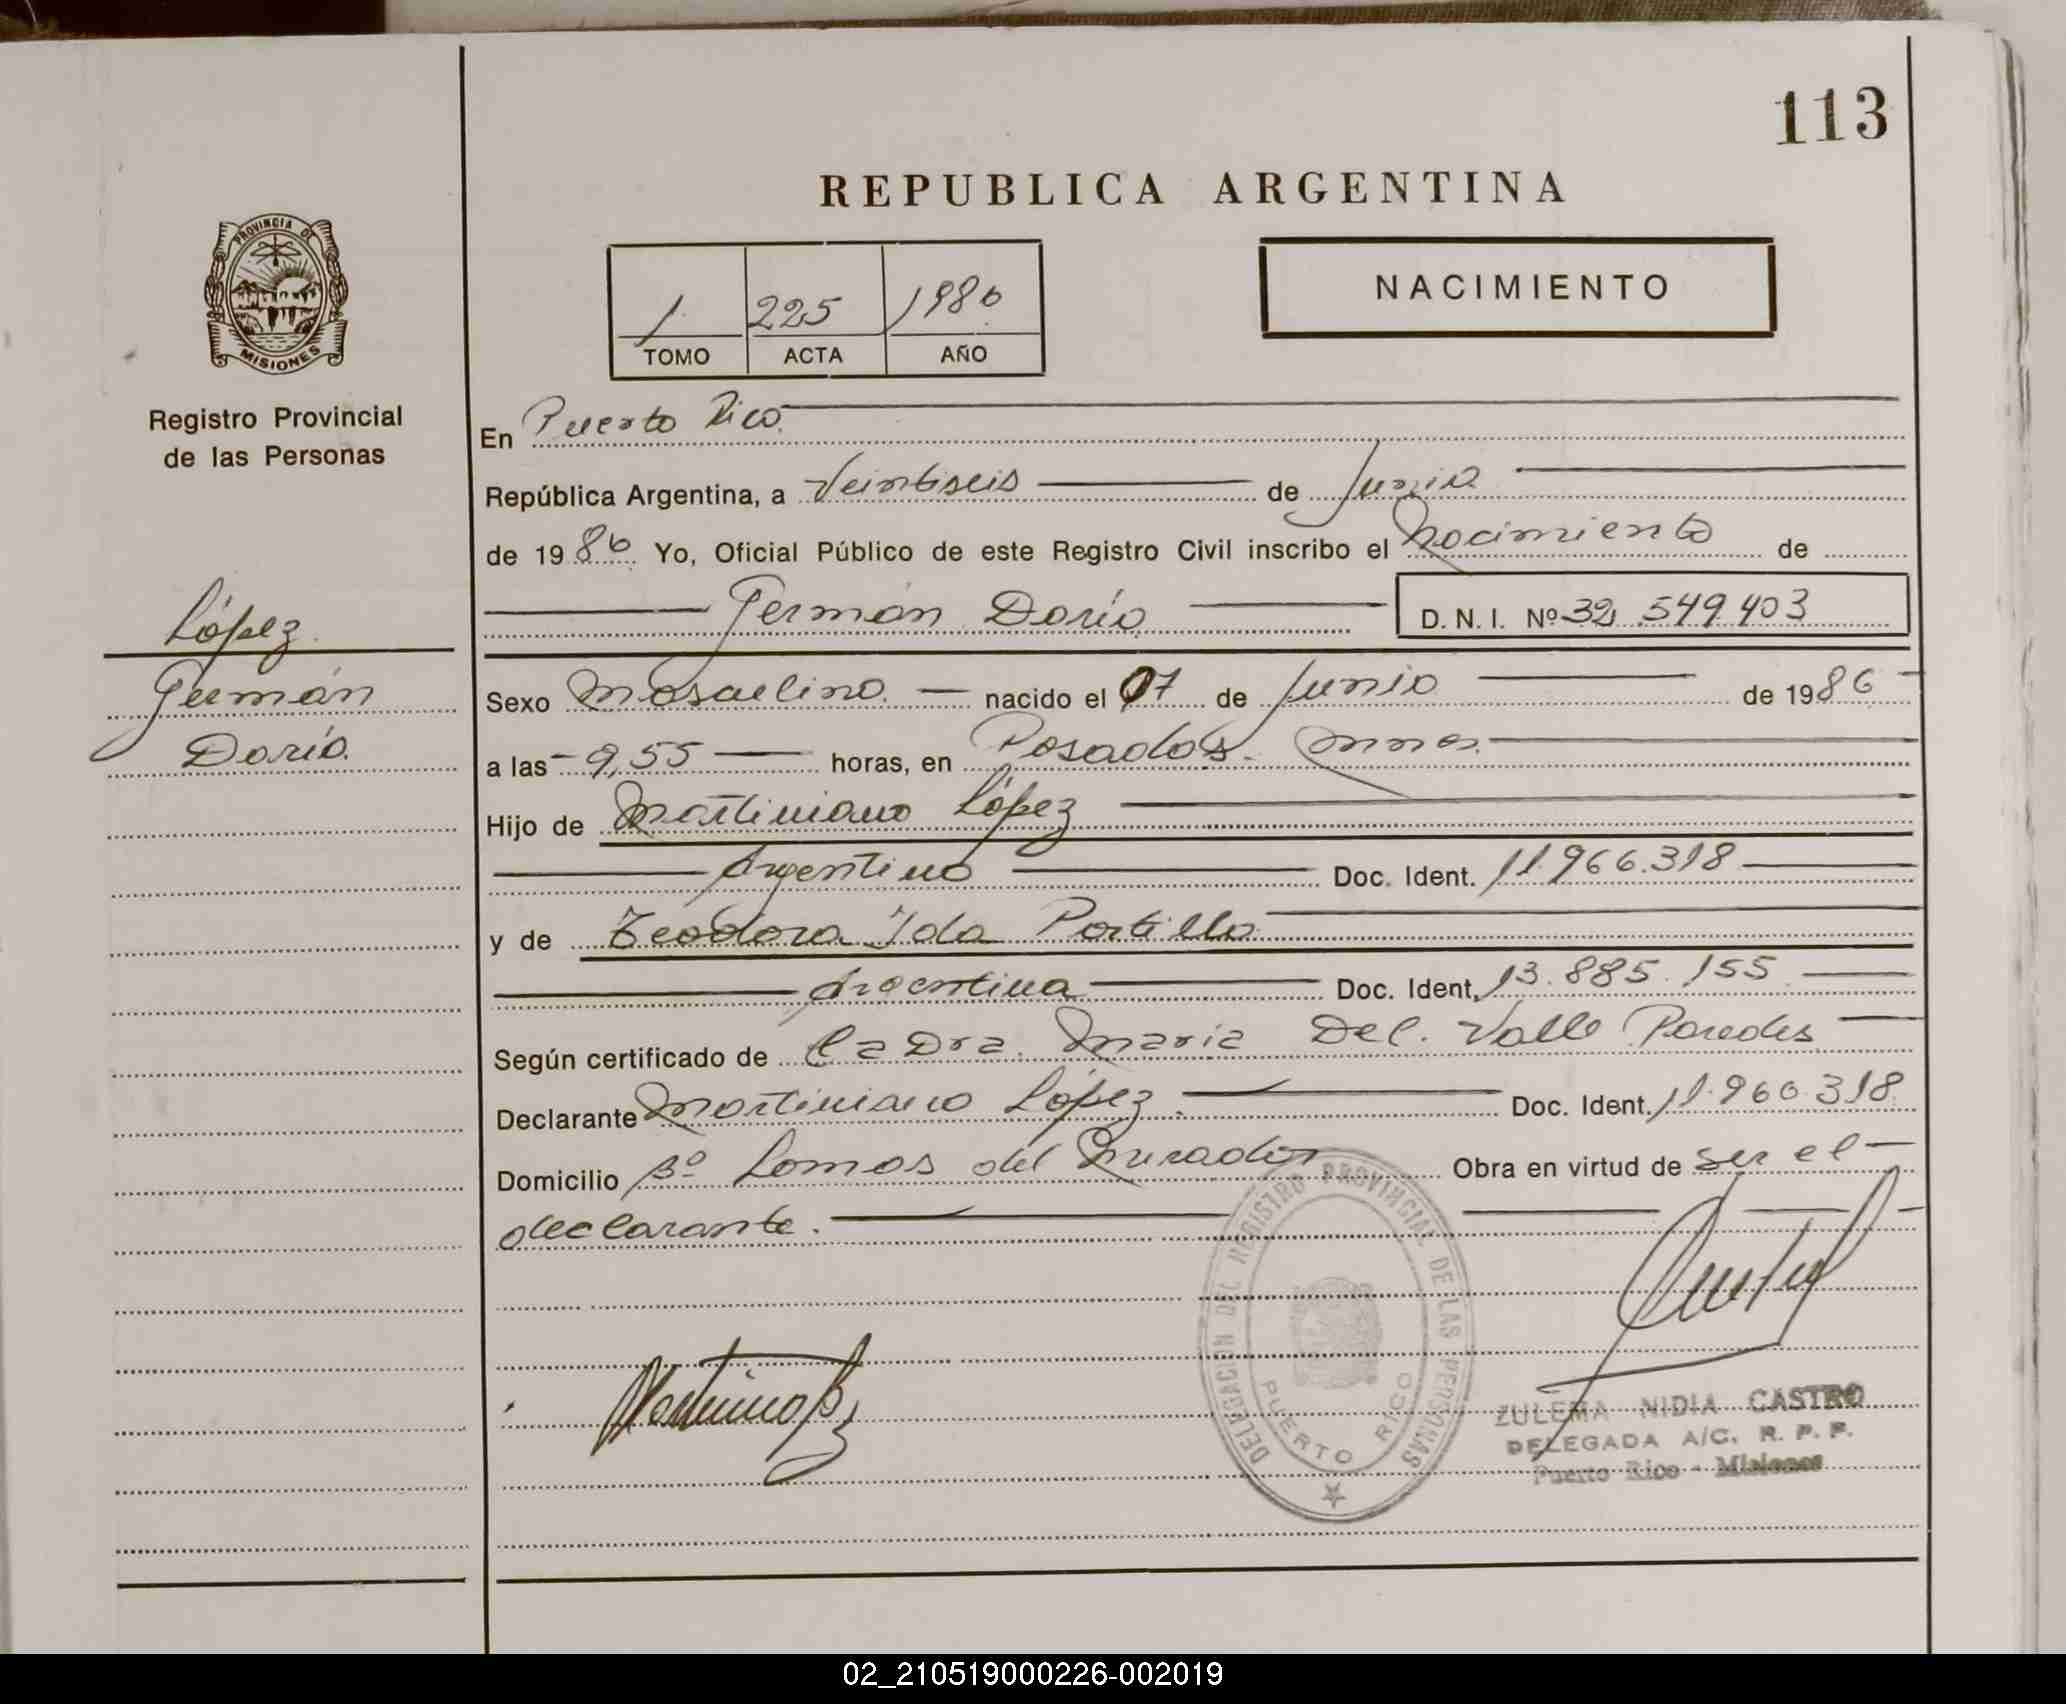 113
REPUBLICA ARGENTINA
PROVINCIA DE
MISIONES
Registro Provincial
de las Personas
1 225 1986
TOMO ACTA AÑO
NACIMIENTO
En Puerto Rico
República Argentina, a Veintiseis de Junio
de 1986 Yo, Oficial Público de este Registro Civil inscribo el Nacimiento de
Germán Darío D. N. I. Nº 32 549 403
López
Germán
Darío.
Sexo Masculino. nacido el 07 de Junio de 1986
a las 9,55 horas, en Posadas. Mnes.
Hijo de Martiniano López
Argentino Doc. Ident. 11.966.318
y de Teodora Ida Portillo
Argentina Doc. Ident. 13.885.155
Según certificado de la Dra. Maria Del. Valle Paredes
Declarante Martiniano López. Doc. Ident. 11.966.318
Domicilio Bº Lomas del Mirador Obra en virtud de ser el
declarante.
DELEGACION DEL REGISTRO PROVINCIAL DE LAS PERSONAS
PUERTO RICO
ZULEMA NIDIA CASTRO
DELEGADA A/C. R. P. P.
Puerto Rico - Misiones
02_210519000226-002019